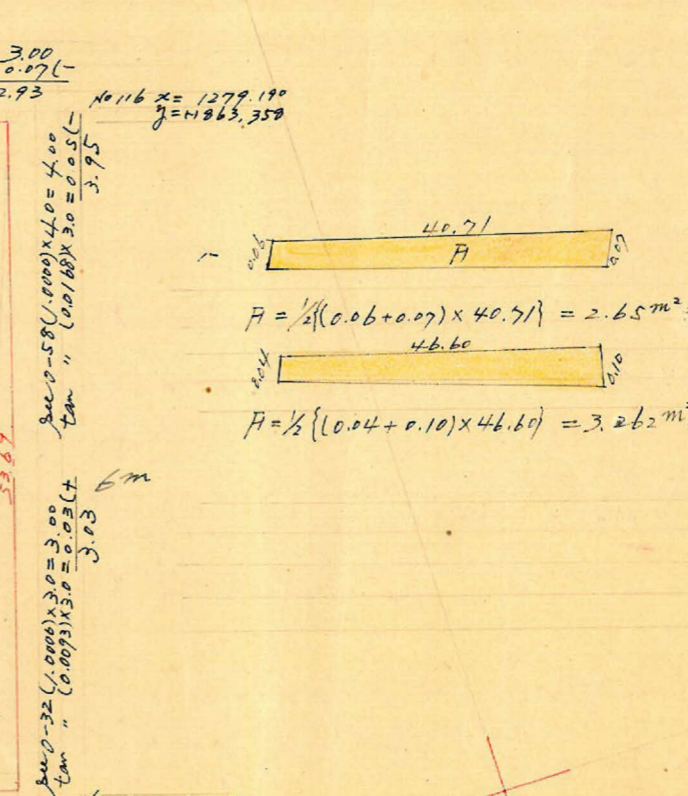 3.00
0.07(-
2.93
No 116 x = 1279.190
y = +1863.358
sec 0-58 (1.0000) × 4.0 = 4.00
tan " (0.0168) × 3.0 = 0.05(-
3.95
40.71
0.06
A
0.07
A = 1/2{(0.06+0.07) × 40.71} = 2.65 m²
46.60
0.04
0.10
A = 1/2{(0.04 + 0.10) × 46.60} = 3.262 m²
53.69
6m
sec 0-32 (1.0006) × 3.0 = 3.00
tan " (0.0093) × 3.0 = 0.03(+
3.03